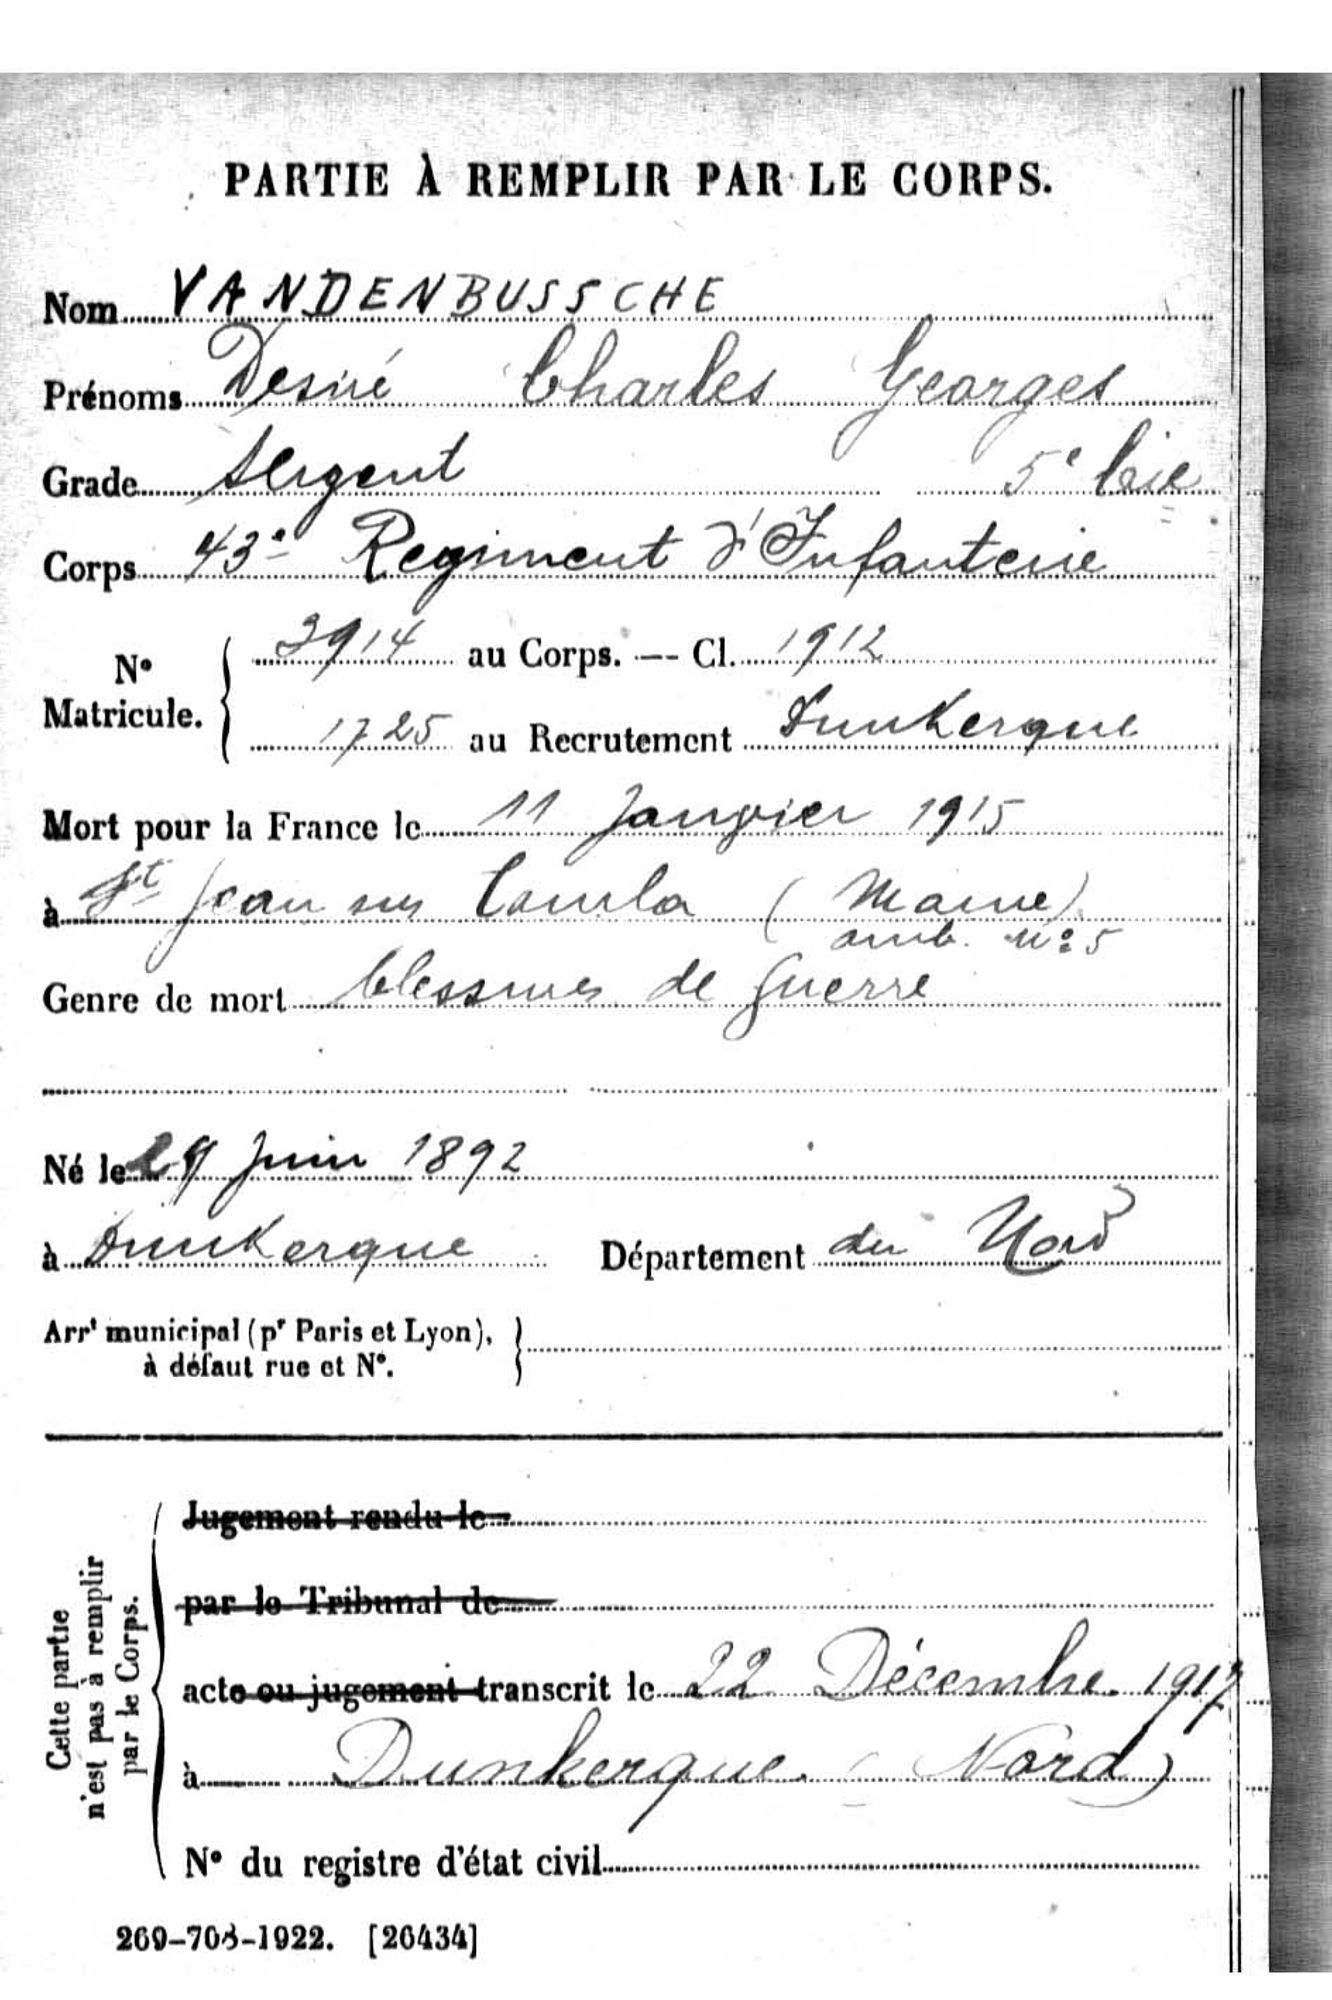 PARTIE À REMPLIR PAR LE CORPS.
Nom VANDENBUSSCHE
Prénoms Desiré Charles Georges
Grade Sergent 5e Cie
Corps 43e Regiment d'Infanterie
N° Matricule. 3914 au Corps. — Cl. 1912
1725 au Recrutement Dunkerque
Mort pour la France le 11 Janvier 1915
à St Jean sur Tourbe (Marne)
amb. n° 5
Genre de mort blessures de guerre
Né le juin 1892
à Dunkerque Département du Nord
Arrt municipal (pr Paris et Lyon),
à défaut rue et N°.
Cette partie
n'est pas à remplir
par le Corps.
Jugement rendu le
par le Tribunal de
acte ou jugement transcrit le 22 Décembre 1917
à Dunkerque (Nord)
N° du registre d'état civil
269-708-1922. [26434]